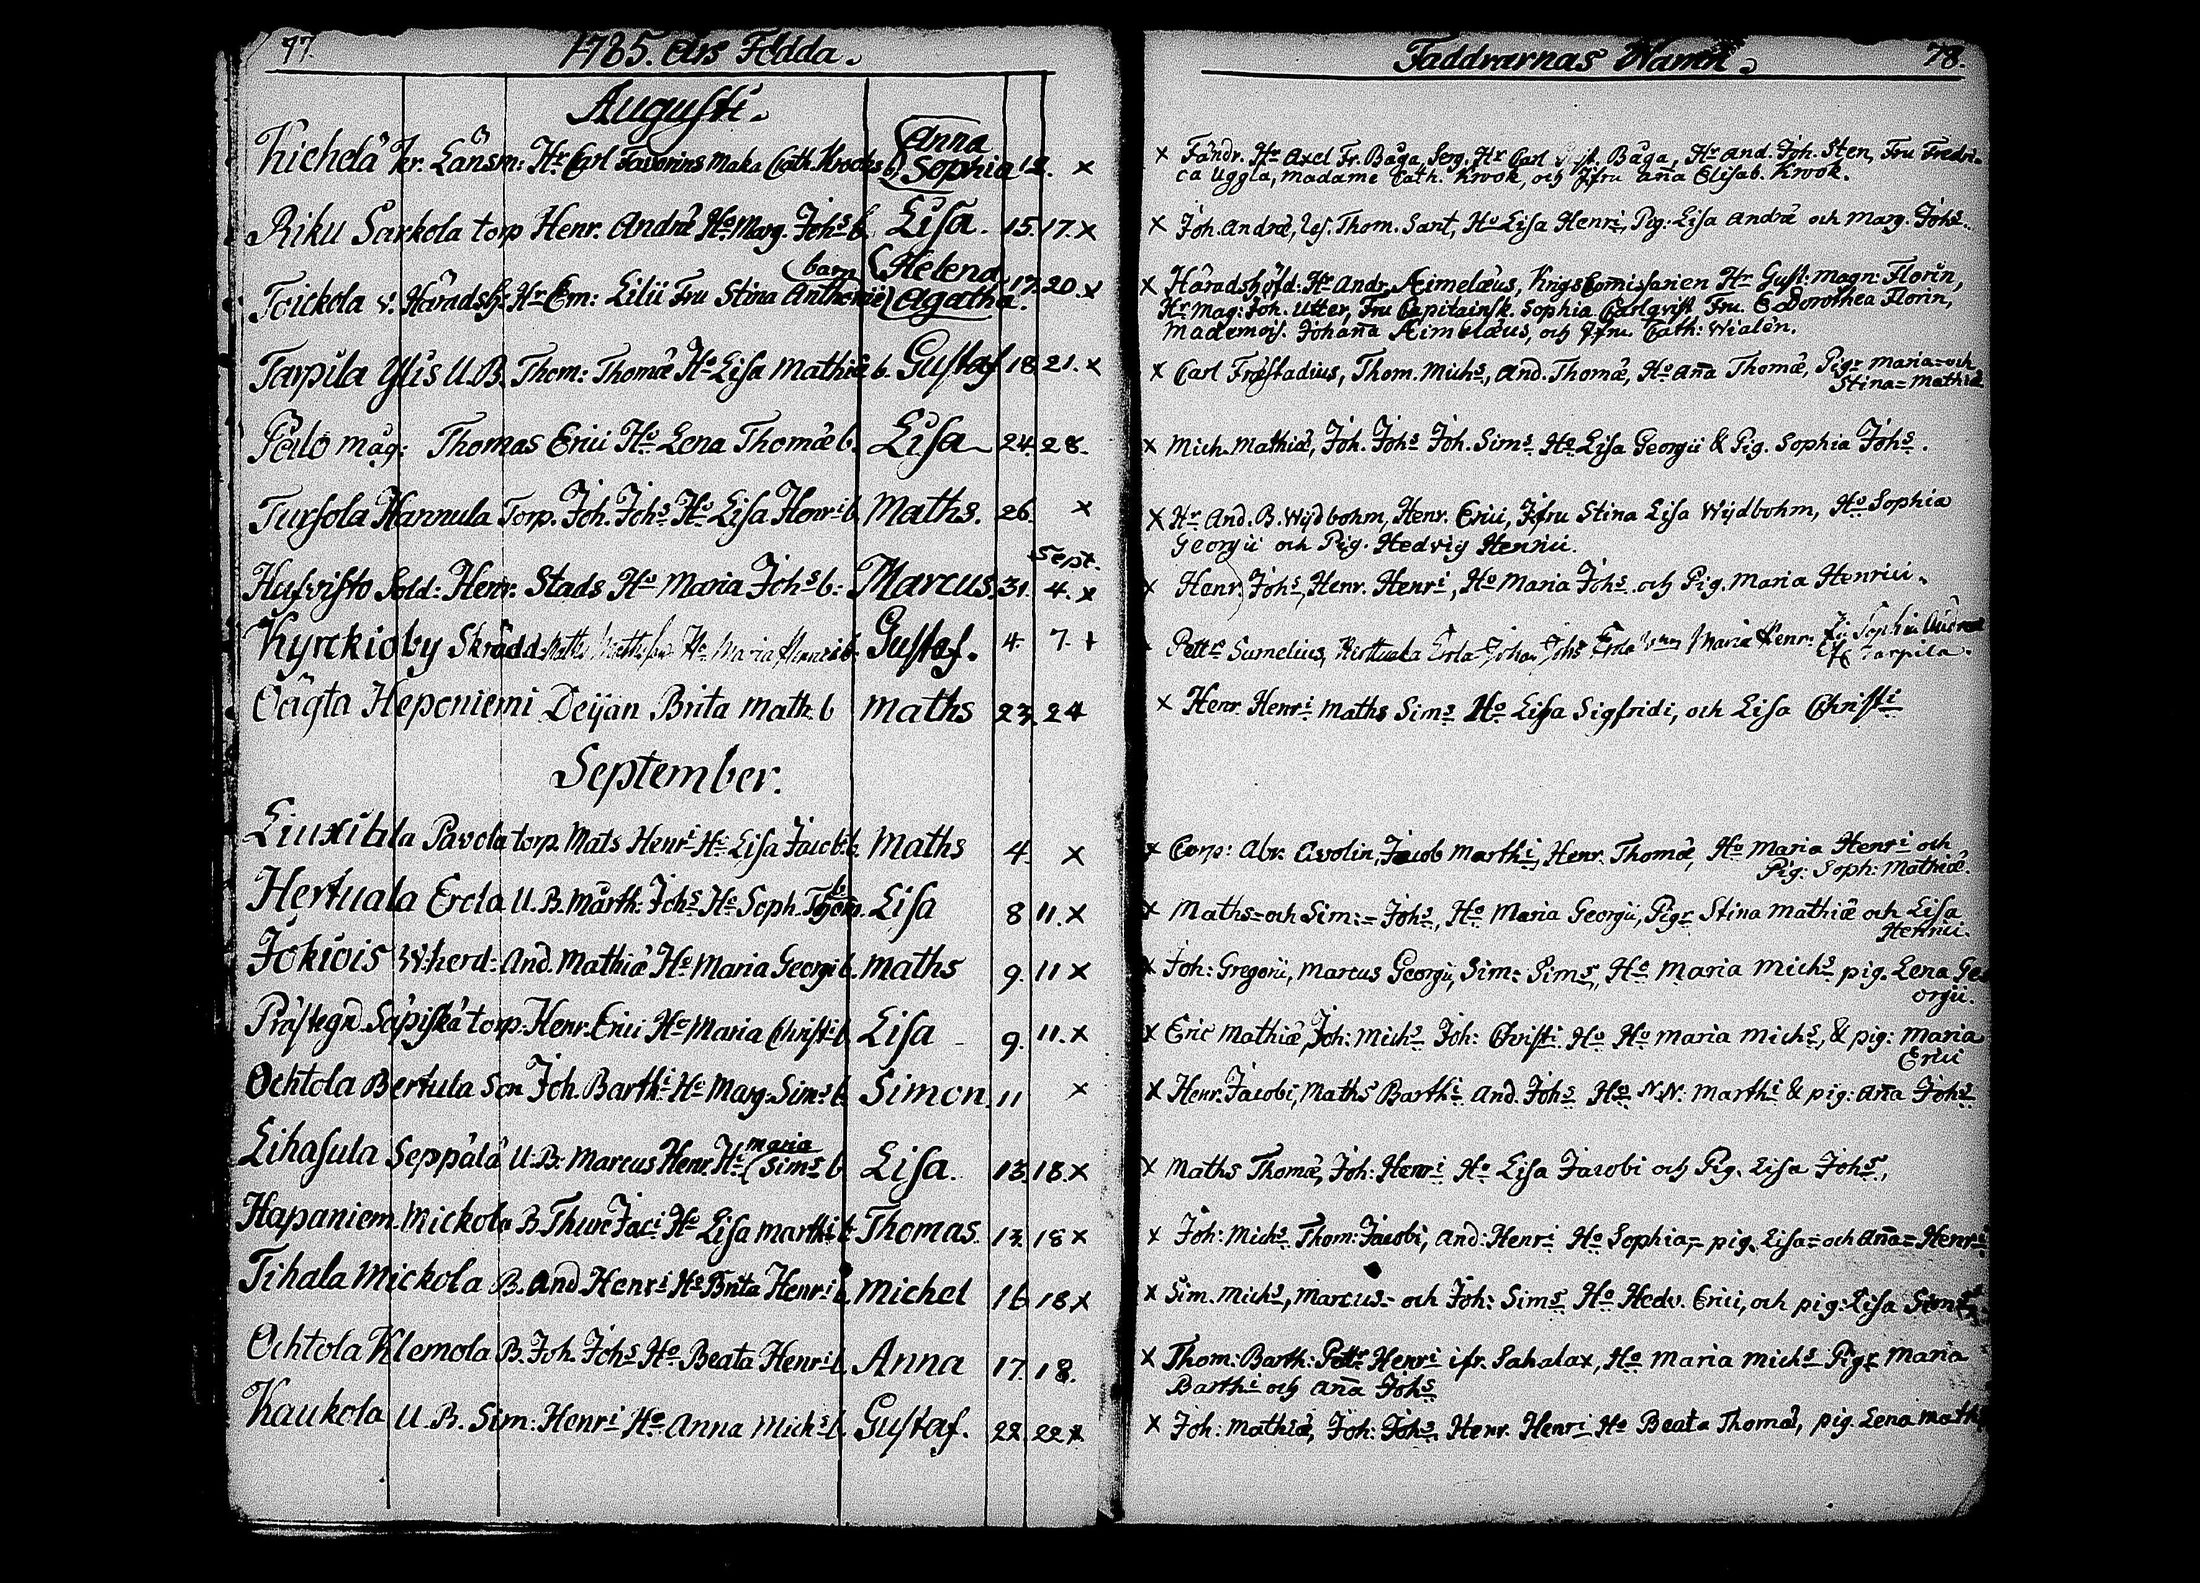 77.
1785. års Födda.
Augusti.
Kichelä Kr. Länsm: Hr Carl Faverins Maka Cath. Krooks b. Anna Sophia 12. x
Riku Sarkola torp Henr. Andræ Ho Marg. Johs b. Lisa. 15. 17. x
Toickola v. Häradsh: Hr Em: Lilii Fru Stina Anthonie barn Helena Agatha. 17. 20. x
Tarpila Ylis U.B. Thom: Thomæ Ho Lisa Mathiæ b. Gustaf 18 21. x
Palo mäg: Thomas Erici Ho Lena Thomæ b. Lisa 24. 28.
Tursola Hannula Torp. Joh. Johs Ho Lisa Henri b. Maths. 26. x
Sept.
Sold: Henr: Stads Ho Maria Johs b: Marcus. 31. 4. x
Kyrckioby Skrädd: Ho Maria b. Gustaf. 4. 7. +
Heponiemi Brita Math: b Maths 23. 24
September.
Pavola torp. Mats Henri Ho Lisa Jacobi b. Maths 4. x
Hertuala Erola U.B. Märth: Johs Ho Soph. Thom. b. Lisa 8 11. x
Jokiois W: herd: And. Mathiæ Ho Maria Georgi b. Maths 9. 11 x
Prästegd. Säpiskä torp. Henr. Erici Ho Maria Christi b. Lisa 9. 11. x
Ochtola Bertula Son Joh. Barthi Ho Marg: Sims b. Simon. 11 x
Lihasula Seppälä U.B. Marcus Henr. Ho Maria Sims b. Lisa. 13. 18. x
Hapaniem Mickola B. Thure Jaci Ho Lisa Marthi b. Thomas. 13. 18 x
Tihala Mickola B. And. Henri Ho Brita Henri b. Michel 16 18 x
Ochtola Klemola B. Joh. Johs Ho Beata Henri b. Anna 17. 18.
Kaukola U.B. Sim: Henri Ho Anna Michs b. Gustaf. 22. 22 x.
Faddrarnas Namn.
78.
x Fändr. Hr Axel Fr. Båga, Serg. Hr Carl Båga, Hr And. Joh. Sten, Fru Fredri-
ca Uggla, Madame Cath. Krook, och Jfru Aña Elisab. Krook.
x Joh. Andræ, Thom. Sant, Ho Lisa Henri, Pig: Lisa Andræ och Marg. Johs.
x Häradshöfd: Hr Andr. Aimelæus, Krigs Comissarien Hr Gust: Magn: Florin,
Hr Mag: Joh. Utter, Fru Capitainsk. Sophia Carlqvist, Fru. E Dorothea Florin,
Mademois. Johaña Aimelæus, och Jfru. Cath: Wialén.
x Carl Fröstadius, Thom. Michs, And. Thomæ, Ho Aña Thomæ, Pigr Maria= och
Stina= Mathiæ
x Mich. Mathiæ, Joh. Johs Joh. Sims Ho Lisa Georgii & Pig. Sophia Johs.
x Hr And. B. Wijdbohm, Henr. Erici, Jfru Stina Lisa Wijdbohm, Ho Sophia
Georgii och Pig. Hedvig Henrici.
x Henr. Johs, Henr. Henri, Ho Maria Johs och Pig. Maria Henrici.
Pettr Sumelius, Erola Johan Johs Erola Maria Henr:
Tarpila.
x Henr. Henri Maths Sims Ho Lisa Sigfridi, och Lisa Christi
x Corp: Abr. Avolin, Jacob Marthi, Henr. Thomæ, Ho Maria Henri och
Pig: Soph: Mathiæ.
x Maths= och Sim:= Johs, Ho Maria Georgii, Pigr Stina Mathiæ och Lisa
Henrici.
x Joh: Gregorii, Marcus Georgii, Sim: Sims, Ho Maria Michs pig. Lena Ge-
orgii.
x Eric Mathiæ, Joh: Michs Joh: Christi Ho Ho Maria Michs, & pig: Maria
Erici
x Henr. Jacobi, Maths Barthi And. Johs Ho N.N: Marthi & pig: Aña Johs
x Maths Thomæ, Joh: Henri Ho Lisa Jacobi och Pig. Lisa Johs,
x Joh: Michs Thom: Jacobi, And: Henri Ho Sophia,= pig. Lisa= och Aña= Henri
x Sim. Michs, Marcus= och Joh: Sims Ho Hedv. Erici, och pig: Lisa Sims
x Thom: Barth: Pettr Henri ifr. Sahalax, Ho Maria Michs Pigr Maria
Barthi och Aña Johs
x Joh: Mathiæ, Joh: Johs Henr. Henri Ho Beata Thomæ, pig. Lena Math